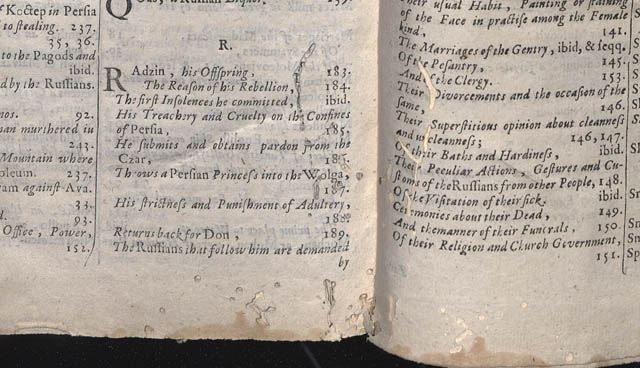 f Koctep in Persia
to stealing. 237.
35, 36.
to the Pagods and
ibid.
d by the Russians.
92.
an murthered in
243.
Mountain where
237.
am against Ava.
33.
93.
Office, Power,
152.
Q
R.
RAdzin, his Offspring, 183.
The Reason of his Rebellion, 184.
The first Insolences he committed, ibid.
His Treachery and Cruelty on the Confines
of Persia, 185.
He submits and obtains pardon from the
Czar,
Throws a Persian Princess into the Wolga,
187.
His strictness and Punishment of Adultery,
188.
Returns back for Don, 189.
The Russians that follow him are demanded
by
Their usual Habit, Painting or staining
of the Face in practise among the Female
kind, 141.
The Marriages of the Gentry, ibid, & seqq.
Of the Pesantry, 145.
And the Clergy. 153.
Their Divorcements and the occasion of the
same, 146.
Their Superstitious opinion about cleanness
and uncleanness; 146, 147.
Of their Baths and Hardiness, ibid.
Their Peculiar Actions, Gestures and Cu-
stoms of the Russians from other People, 148.
Of the Visitation of their sick. ibid.
Ceremonies about their Dead, 149.
And the manner of their Funerals, 150.
Of their Religion and Church Government,
151.